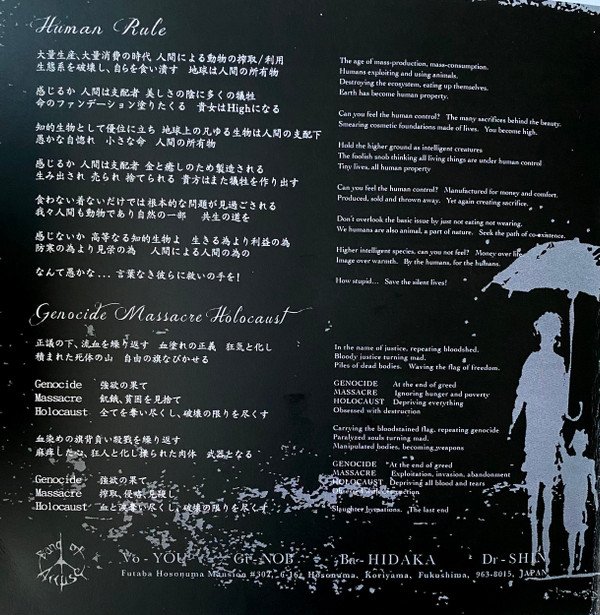 Human Rule
大量生産、大量消費の時代 人間による動物の搾取/利用
生態系を破壊し、自らを食い潰す 地球は人間の所有物
感じるか 人間は支配者 美しさの陰に多くの犠牲
命のファンデーション塗りたくる 貴女はHighになる
知的生物として優位に立ち 地球上の凡ゆる生物は人間の支配下
愚かな自惚れ 小さな命 人間の所有物
感じるか 人間は支配者 金と癒しのため製造される
生み出され 売られ 捨てられる 貴方はまた犠牲を作り出す
食わない着ないだけでは根本的な問題が見過ごされる
我々人間も動物であり自然の一部 共生の道を
感じないか 高等なる知的生物よ 生きる為より利益の為
防寒の為より見栄の為 人間による人間の為の
なんて愚かな... 言葉なき彼らに救いの手を!
The age of mass-production, mass-consumption.
Humans exploiting and using animals.
Destroying the ecosystem, eating up themselves.
Earth has become human property.
Can you feel the human control? The many sacrifices behind the beauty.
Smearing cosmetic foundations made of lives. You become high.
Hold the higher ground as intelligent creatures
The foolish snob thinking all living things are under human control
Tiny lives, all human property
Can you feel the human control? Manufactured for money and comfort.
Produced, sold and thrown away. Yet again creating sacrifice.
Don't overlook the basic issue by just not eating not wearing.
We humans are also animal, a part of nature. Seek the path of co-existence.
Higher intelligent species, can you not feel? Money over life,
Image over warmth. By the humans, for the humans.
How stupid... Save the silent lives!
Genocide Massacre Holocaust
正義の下、流血を繰り返す 血塗れの正義 狂気と化し
積まれた死体の山 自由の旗なびかせる
Genocide 強欲の果て
Massacre 飢餓、貧困を見捨て
Holocaust 全てを奪い尽くし、破壊の限りを尽くす
血染めの旗背負い殺戮を繰り返す
麻痺した心、狂人と化し操られた肉体 武器となる
Genocide 強欲の果て
Massacre 搾取、侵略、見殺し
Holocaust 血と涙奪い尽くし、破壊の限りを尽くす
In the name of justice, repeating bloodshed.
Bloody justice turning mad.
Piles of dead bodies. Waving the flag of freedom.
GENOCIDE At the end of greed
MASSACRE Ignoring hunger and poverty
HOLOCAUST Depriving everything
Obsessed with destruction
Carrying the bloodstained flag, repeating genocide
Paralyzed souls turning mad.
Manipulated bodies, becoming weapons
GENOCIDE At the end of greed
MASSACRE Exploitation, invasion, abandonment
HOLOCAUST Depriving all blood and tears
Obsessed with destruction
Slaughter by nations. The last end
Band of Accuse
Vo - YOU Gt - NOB Ba - HIDAKA Dr - SHIN
Futaba Hosonuma Mansion #302, 6-16, Hosonuma, Koriyama, Fukushima, 963-8015, JAPAN